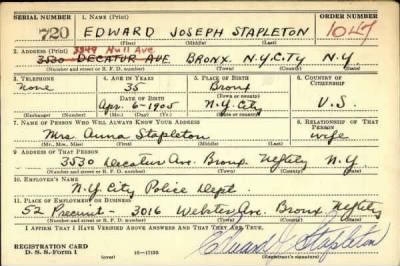 SERIAL NUMBER 1. NAME (Print) ORDER NUMBER
720 EDWARD JOSEPH STAPLETON 1047
(First) (Middle) (Last)
3249 Hull Ave.
2. ADDRESS (Print) 3530 DECATUR AVE. BRONX. N.Y.CITY N.Y.
(Number and street or R. F. D. number) (Town) (County) (State)
3. TELEPHONE 4. AGE IN YEARS 5. PLACE OF BIRTH 6. COUNTRY OF CITIZENSHIP
None 35 Bronx
DATE OF BIRTH (Town or county)
Apr. 6-1905 N.Y. City U.S.
(Exchange) (Number) (Mo.) (Day) (Yr.) (State or country)
7. NAME OF PERSON WHO WILL ALWAYS KNOW YOUR ADDRESS 8. RELATIONSHIP OF THAT PERSON
Mrs. Anna Stapleton wife
(Mr., Mrs., Miss) (First) (Middle) (Last)
9. ADDRESS OF THAT PERSON
3530 Decatur Av. Bronx. NYCity N.Y.
(Number and street or R. F. D. number) (Town) (County) (State)
10. EMPLOYER'S NAME
N.Y. City Police Dept.
11. PLACE OF EMPLOYMENT OR BUSINESS
52 Precinct - 3016 Webster Av. Bronx NYCity
(Number and street or R. F. D. number) (Town) (County) (State)
I AFFIRM THAT I HAVE VERIFIED ABOVE ANSWERS AND THAT THEY ARE TRUE.
REGISTRATION CARD
D. S. S. Form 1 (over) 16—17105 Edward J Stapleton
(Registrant's signature)